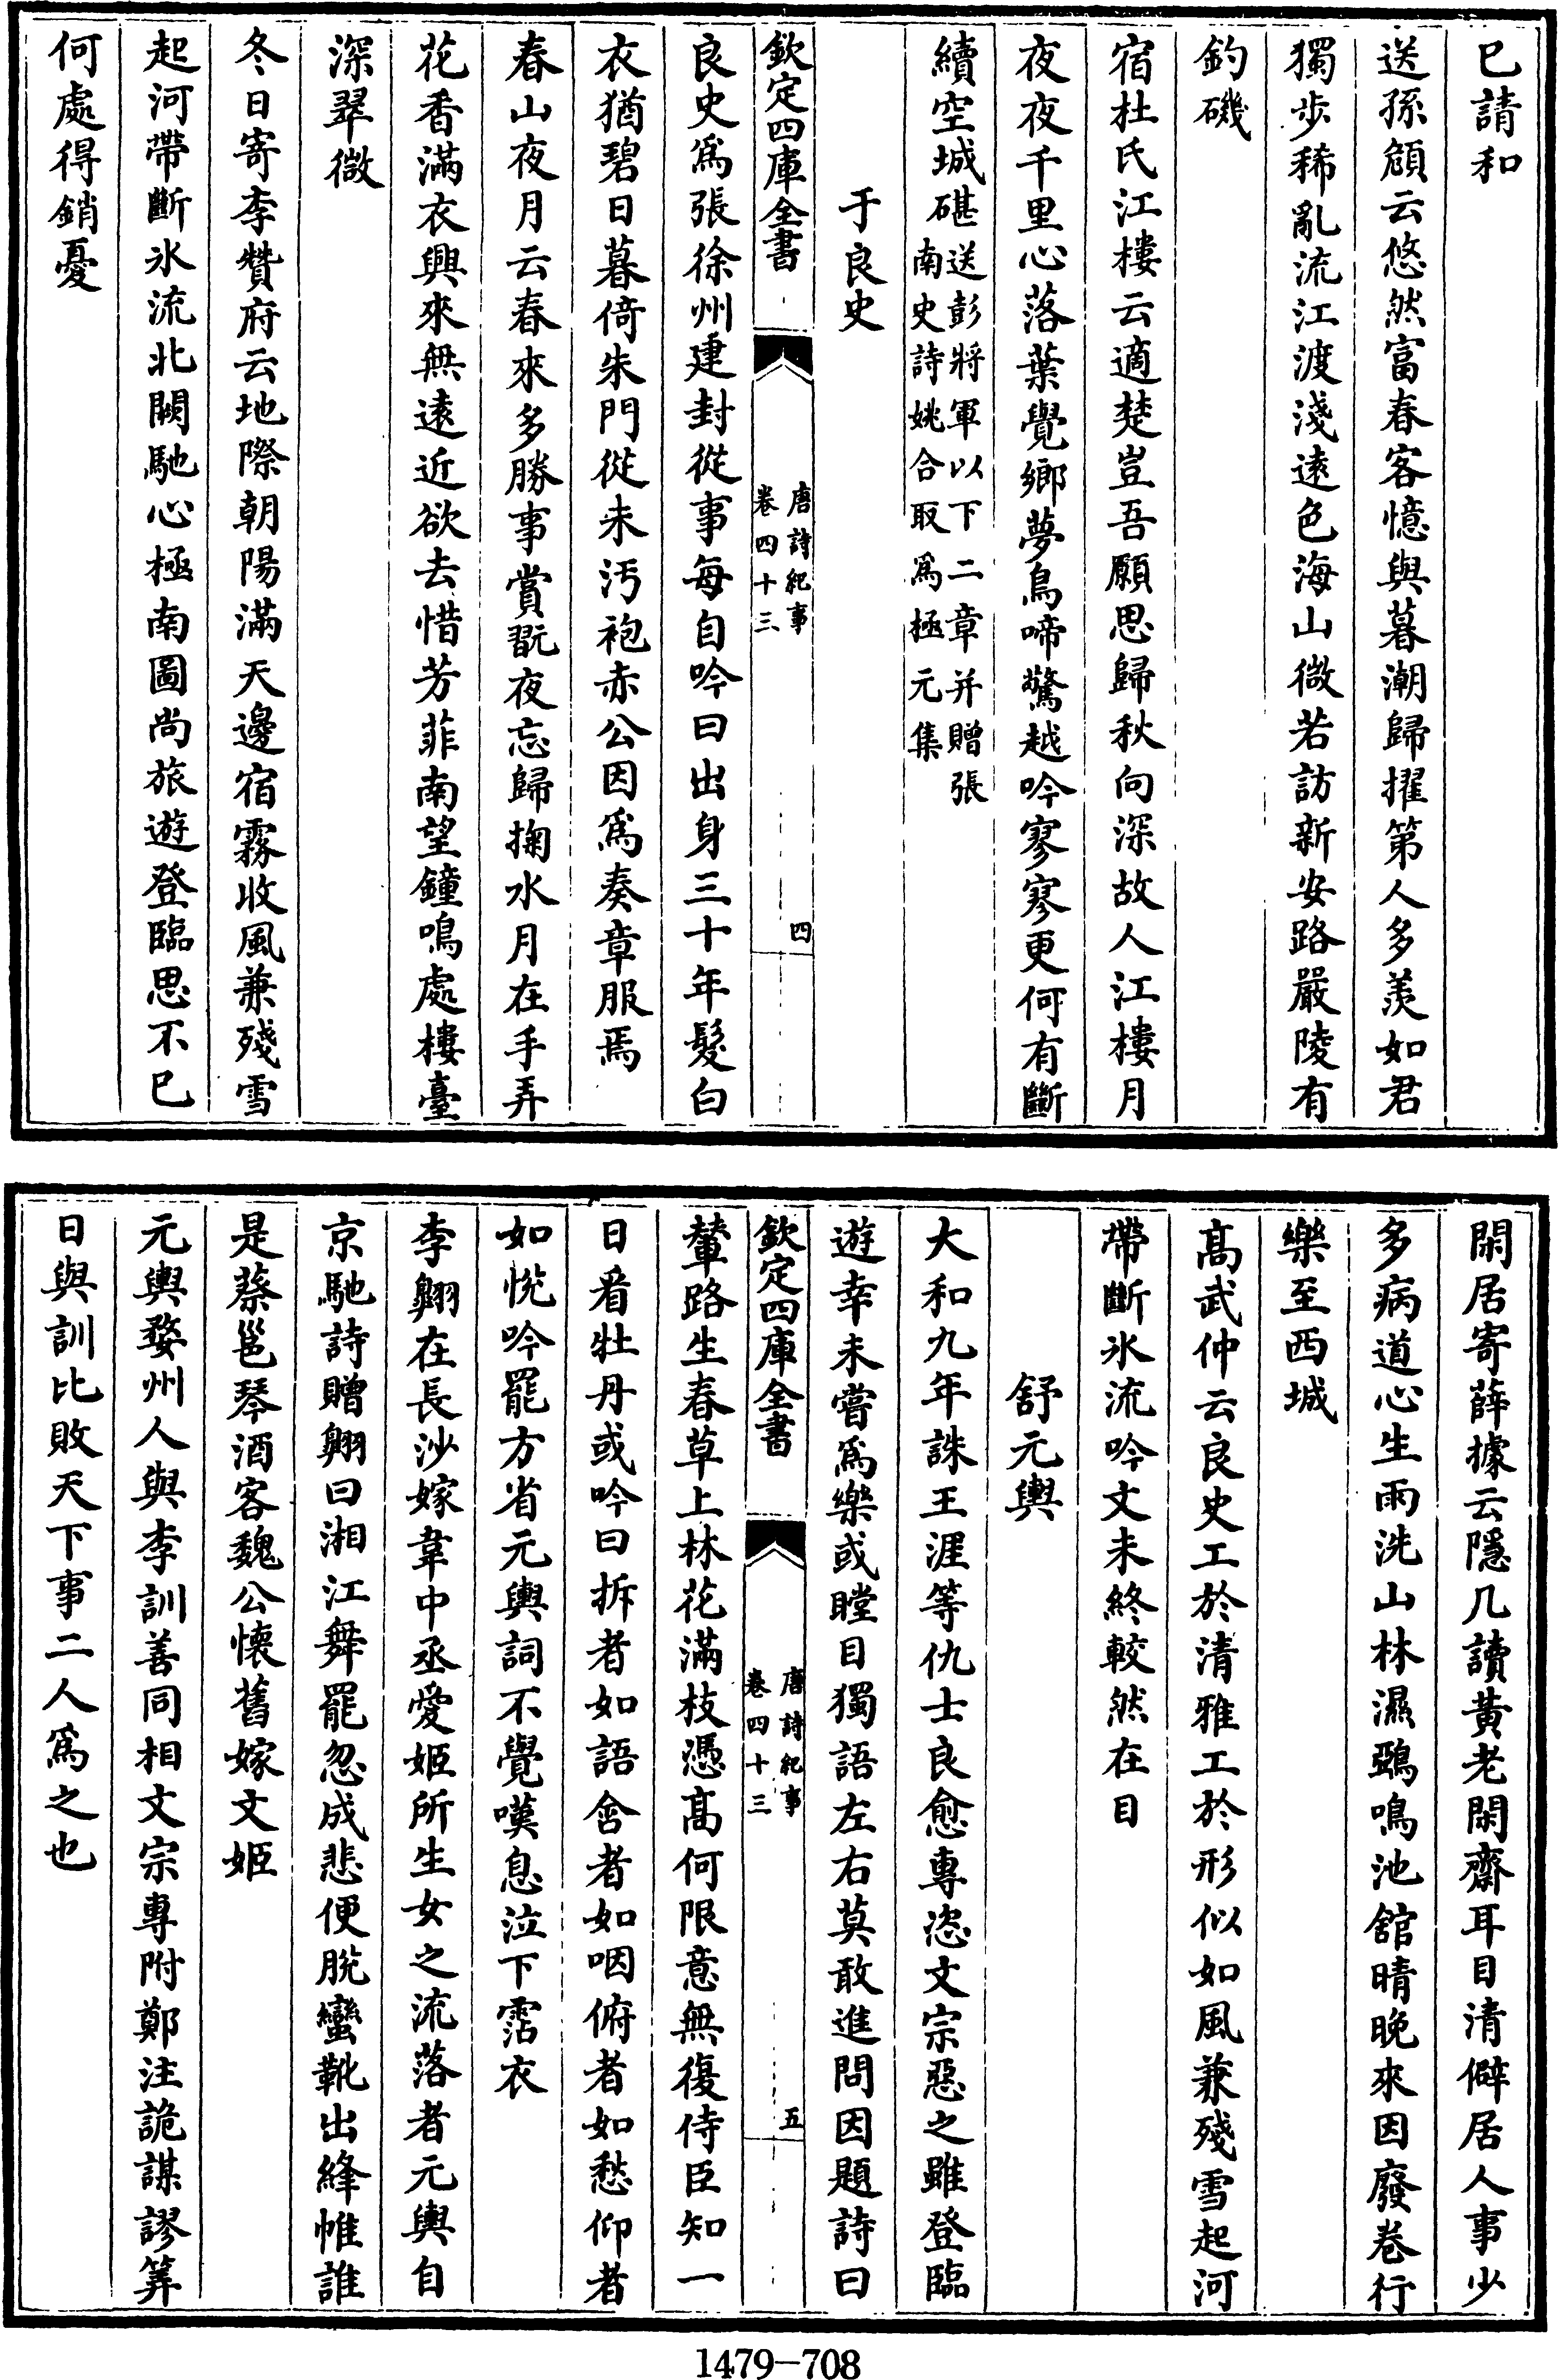 已請和
送孫頠云悠然富春客憶與暮潮歸擢第人多羨如君
獨步稀亂流江渡淺遠色海山微若訪新安路嚴陵有
釣磯
宿杜氏江樓云適楚豈吾願思歸秋向深故人江樓月
夜夜千里心落葉覺鄉夢鳥啼驚越吟寥寥更何有斷
續空城碪送彭將軍以下二章并贈張
南史詩姚合取爲極元集
于良史
欽定四庫全書
唐詩紀事
卷四十三
四
良史爲張徐州建封從事每自吟曰出身三十年髮白
衣猶碧日暮倚朱門從未汚袍赤公因爲奏章服焉
春山夜月云春來多勝事賞翫夜忘歸掬水月在手弄
花香滿衣興來無遠近欲去惜芳菲南望鐘鳴處樓臺
深翠微
冬日寄李贊府云地際朝陽滿天邊宿霧收風兼殘雪
起河帶斷氷流北闕馳心極南圖尚旅遊登臨思不已
何處得銷憂
閑居寄薛據云隱几讀黃老閑齋耳目清僻居人事少
多病道心生雨洗山林濕鵶鳴池舘晴晚來因廢卷行
樂至西城
高武仲云良史工於清雅工於形似如風兼殘雪起河
帶斷氷流吟文未終較然在目
舒元輿
大和九年誅王涯等仇士良愈專恣文宗惡之雖登臨
遊幸未嘗爲樂或瞠目獨語左右莫敢進問因題詩曰
欽定四庫全書
唐詩紀事
卷四十三
五
輦路生春草上林花滿枝憑高何限意無復侍臣知一
日看牡丹或吟曰拆者如語含者如咽俯者如愁仰者
如悅吟罷方省元輿詞不覺嘆息泣下霑衣
李翺在長沙嫁韋中丞愛姬所生女之流落者元輿自
京馳詩贈翺曰湘江舞罷忽成悲便脫蠻靴出絳帷誰
是蔡邕琴酒客魏公懷舊嫁文姬
元輿婺州人與李訓善同相文宗專附鄭注詭謀謬筭
日與訓比敗天下事二人爲之也
1479-708